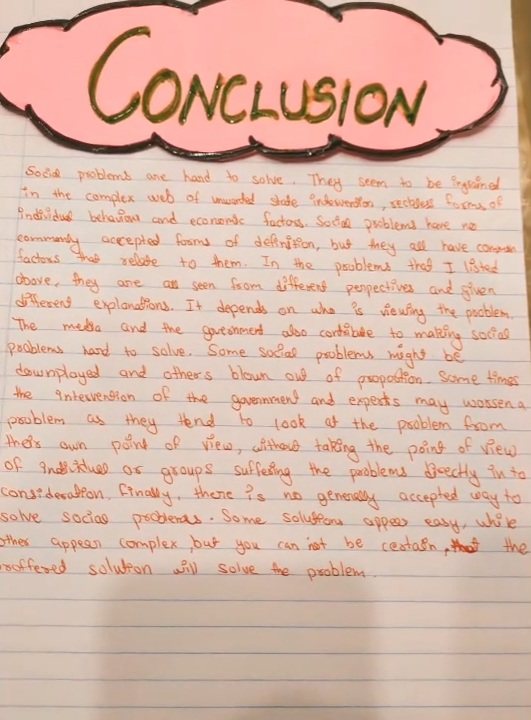 CONCLUSION
Social problems are hard to solve. They seem to be ingrained
in the complex web of unwanted state intervention, reckless forms of
individual behaviour and economic factors. Social problems have no
commonly accepted forms of definition, but they all have common
factors that relate to them. In the problems that I listed
above, they are all seen from different perspectives and given
different explanations. It depends on who is viewing the problem.
The media and the government also contribute to making social
problems hard to solve. Some social problems might be
downplayed and others blown out of propotion. Some times
the intervention of the government and experts may worsen a
problem as they tend to look at the problem from
their own point of view, without taking the point of view
of individual or groups suffering the problems directly in to
consideration. Finally, there is no generally accepted way to
solve social problems. Some solutions appear easy, while
other appear complex, but you can not be certain, that the
proffered solution will solve the problem.